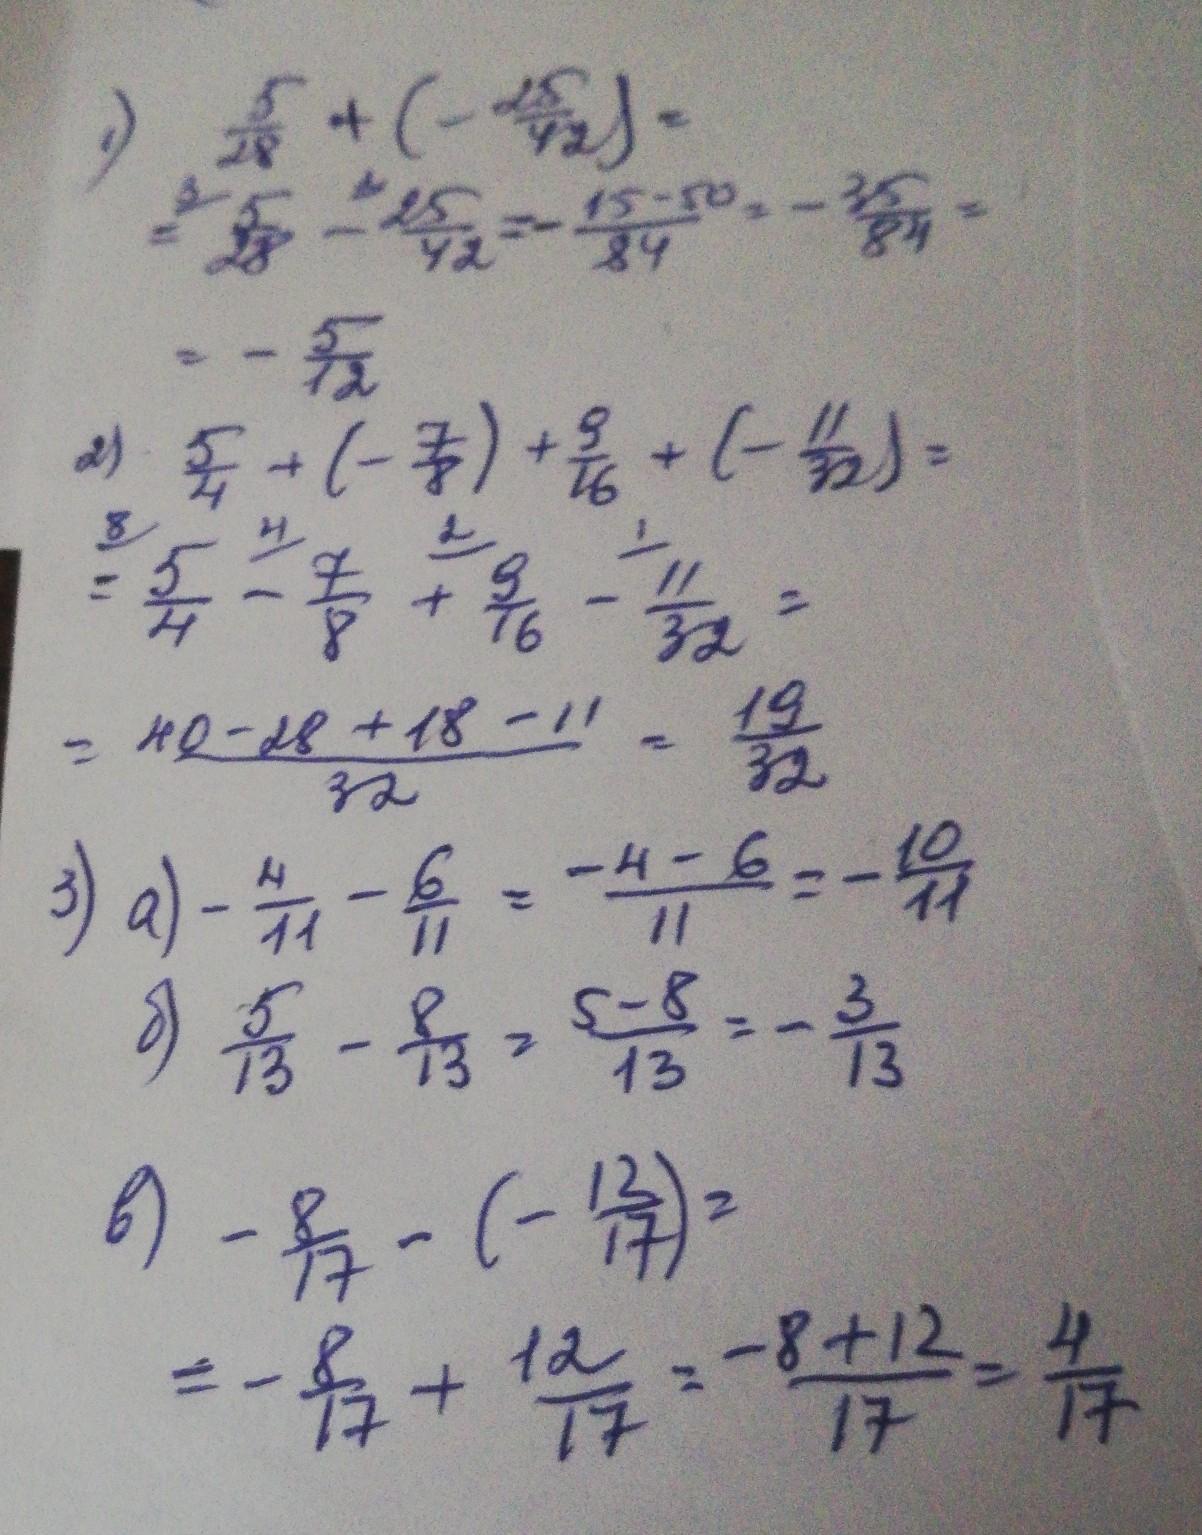 1) 5/28 + (- 25/42) =
= 5/28 ^3 - 25/42 ^2 = - 15-50/84 = - 35/84 =
= - 5/12
2) 5/4 + (- 7/8) + 9/16 + (- 11/32) =
= 5/4 ^8 - 7/8 ^4 + 9/16 ^2 - 11/32 ^1 =
= 40-28+18-11/32 = 19/32
3) а) - 4/11 - 6/11 = -4-6/11 = - 10/11
б) 5/13 - 8/13 = 5-8/13 = - 3/13
в) - 8/17 - (- 12/17) =
= - 8/17 + 12/17 = -8+12/17 = 4/17